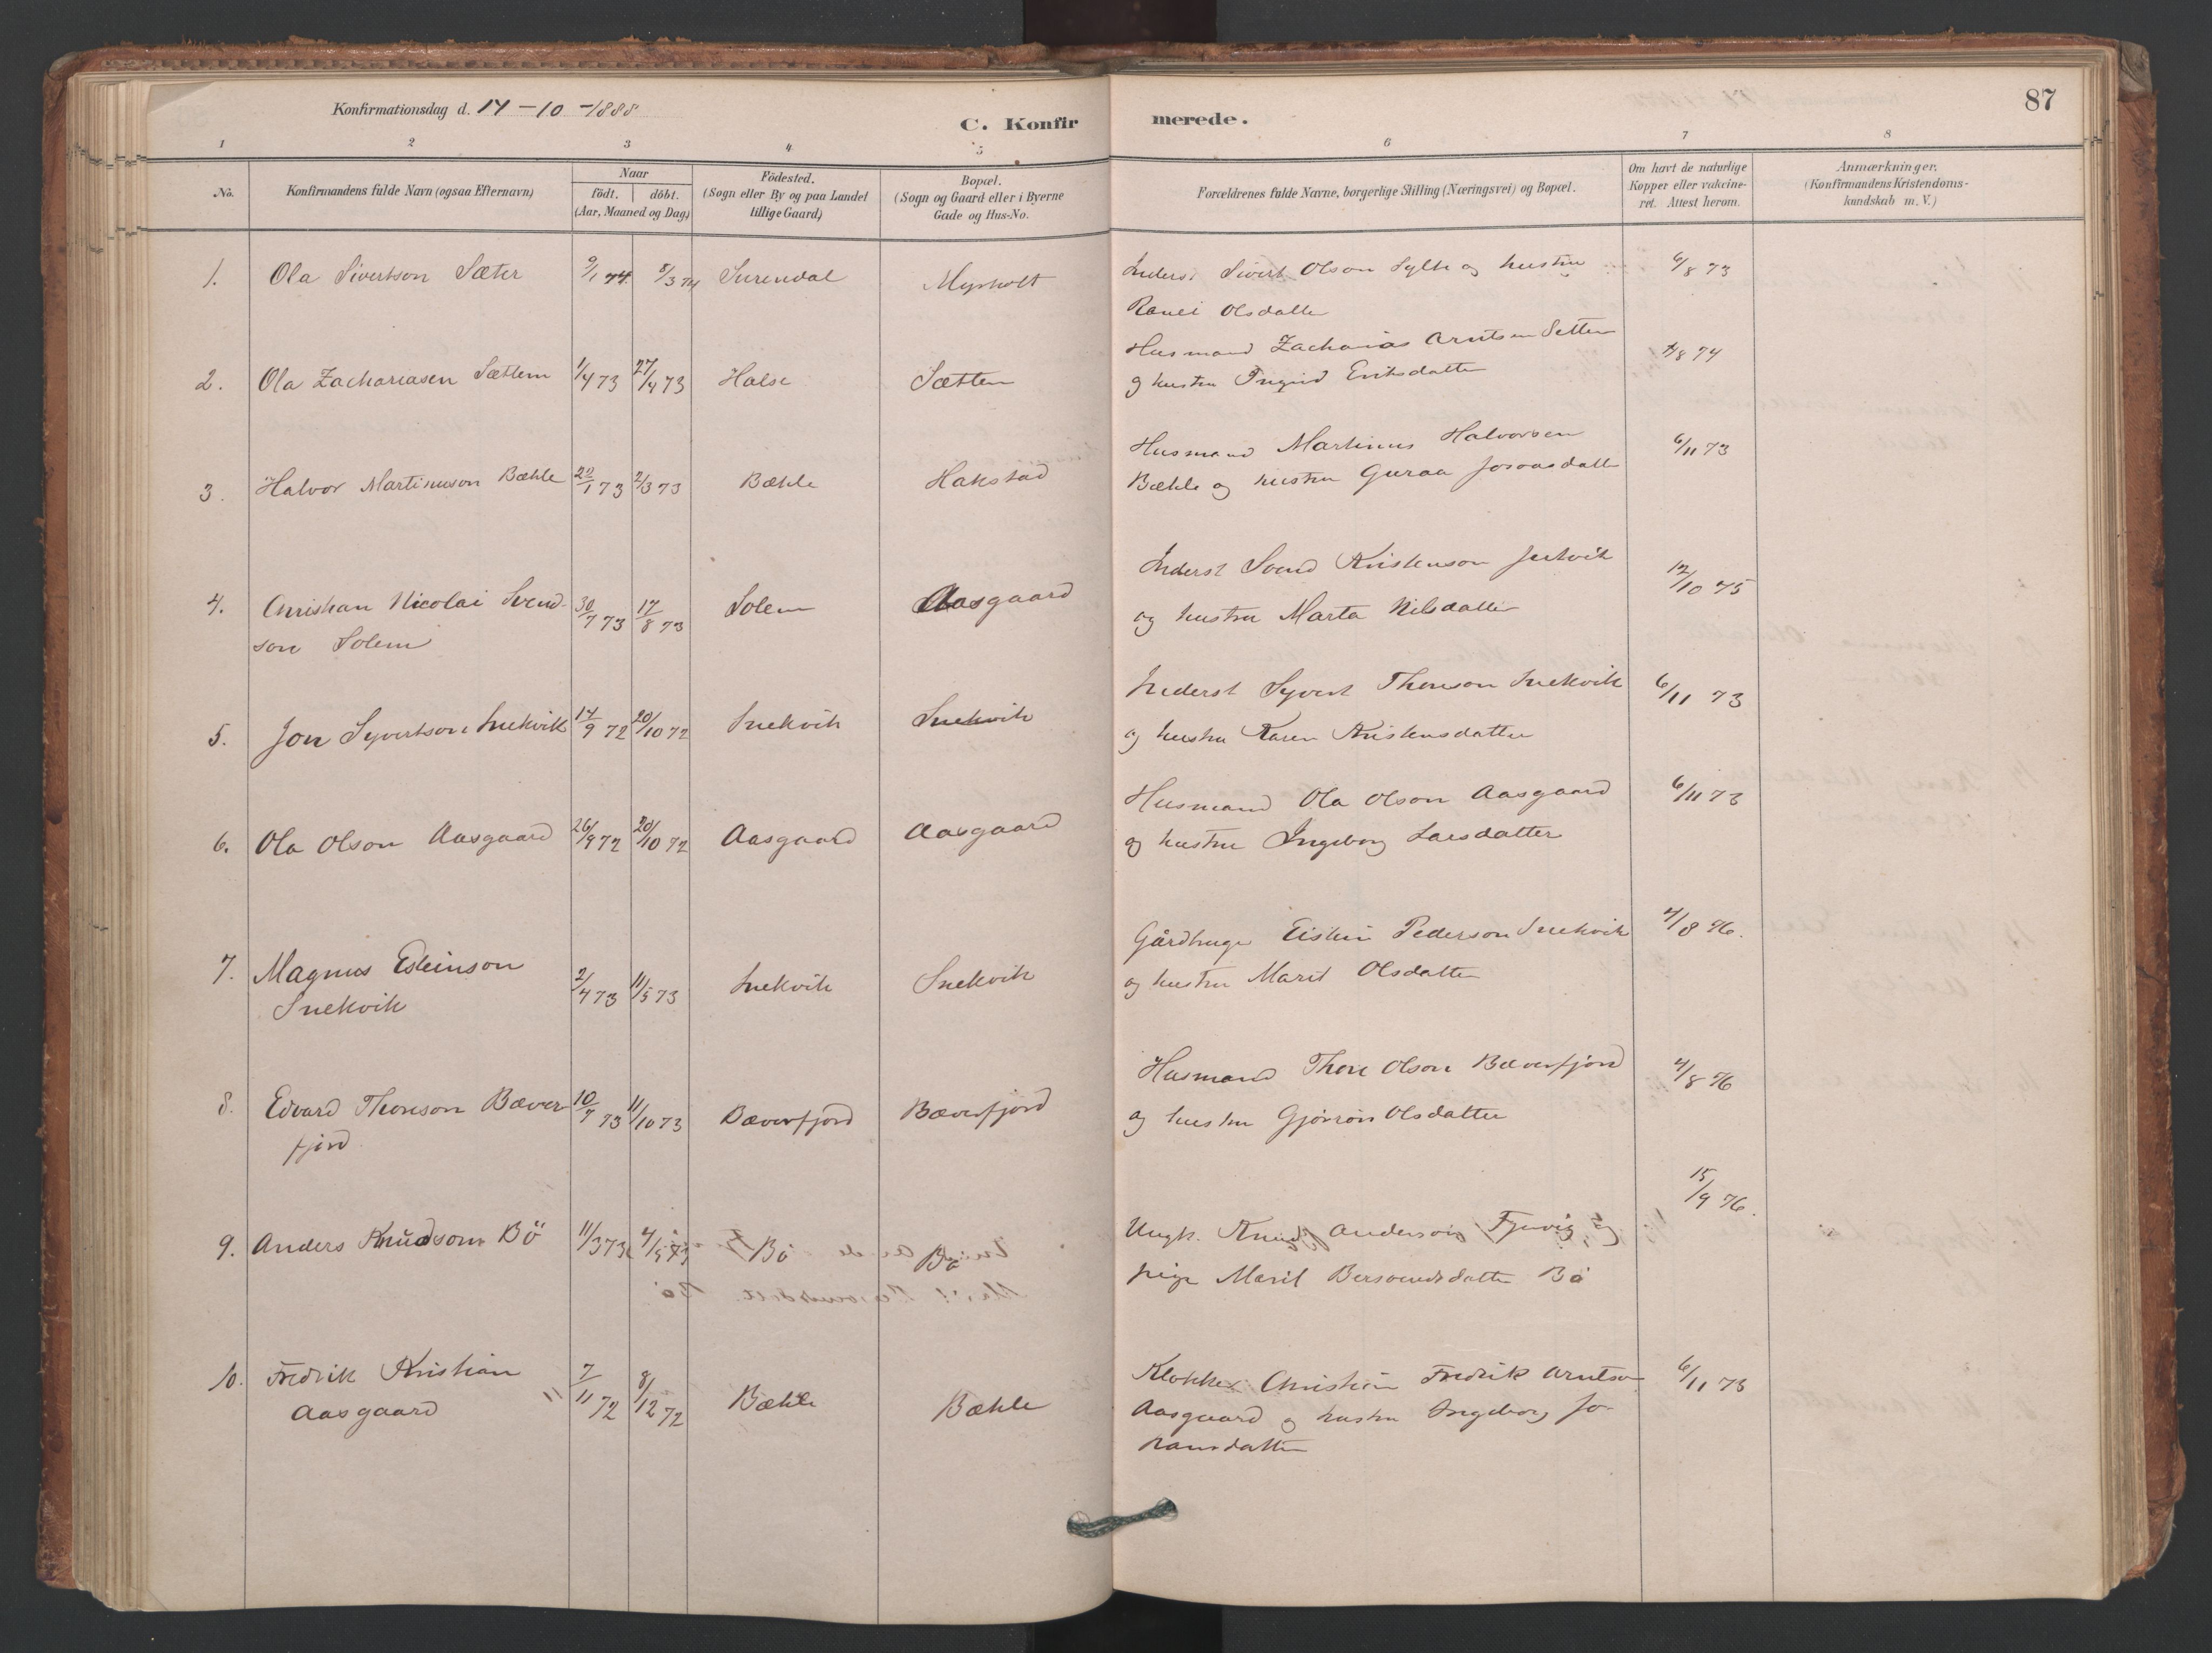 Konfirmationsdag d. 14-10-1888
C. Konfir merede.
87
1 2 3 4 5 6 7 8
No.
Konfirmandens fulde Navn (ogsaa Efternavn)
Naar
födt. döbt.
(Aar, Maaned og Dag)
Födested.
(Sogn eller By og paa Landet
tillige Gaard)
Bopæl.
(Sogn og Gaard eller i Byerne
Gade og Hus-No.
Forældrenes fulde Navne, borgerlige Stilling (Næringsvei) og Bopæl.
Om havt de naturlige
Kopper eller vakcine-
ret. Attest herom.
Anmærkninger.
(Konfirmandens Kristendoms-
kundskab m. V.)
1. Ola Sivertson Sæter 9/1 74 8/3 74 Surendal Myrholt Inderst Sivert Olson Sylte og hustru 6/8 73
Ranei Olsdatter
2. Ola Zachariasen Sættem 1/4 73 27/4 73 Halse Sættem Husmand Zacharias Arntsen Settem 4/8 74
og hustru Ingrid Eriksdatter
3. Halvor Martinusson Bæhle 22/1 73 2/3 73 Bæhle Hakstad Husmand Martinus Halvorsen 6/11 73
Bæhle og hustru Guraa
4. Christian Nicolai Svend- 30/7 73 17/8 73 Solem Aasgaard Inderst Svend Kristenson 12/10 75
son Solem og hustru Marta Nilsdatter
5. Jon Syvertson Snekvik 14/9 72 20/10 72 Snekvik Snekvik Inderst Syvert Thorson Snekvik 6/11 73
og hustru Karen Kristensdatter
6. Ola Olson Aasgaard 26/9 72 20/10 72 Aasgaard Aasgaard Husmand Ola Olson Aasgaard 6/11 73
og hustru Ingeborg Larsdatter
7. Magnus Esteinson 2/4 73 11/5 73 Snekvik Snekvik Gårdbruger Eistein Pederson Snekvik 4/8 76.
Snekvik og hustru Marit Olsdatter
8. Edvard Thorson Bæver 10/7 73 11/10 73 Bæverfjord Bæverfjord Husmand Thore Olson Bæverfjord 4/8 76
fjord og hustru Gjörön Olsdatter
9. Anders Knudson Bö 11/3 73 4/5 73 Bö Bö Ungk. Knud Anderson og 15/9 76.
pige Marit Bersvendsdatter Bö
10. Fredrik Kristian 7/11 72 8/12 72 Bæhle Bæhle Klokker Christian Fredrik Arntson 6/11 73
Aasgaard " Aasgaard og hustru Ingeborg Jo-
hansdatter